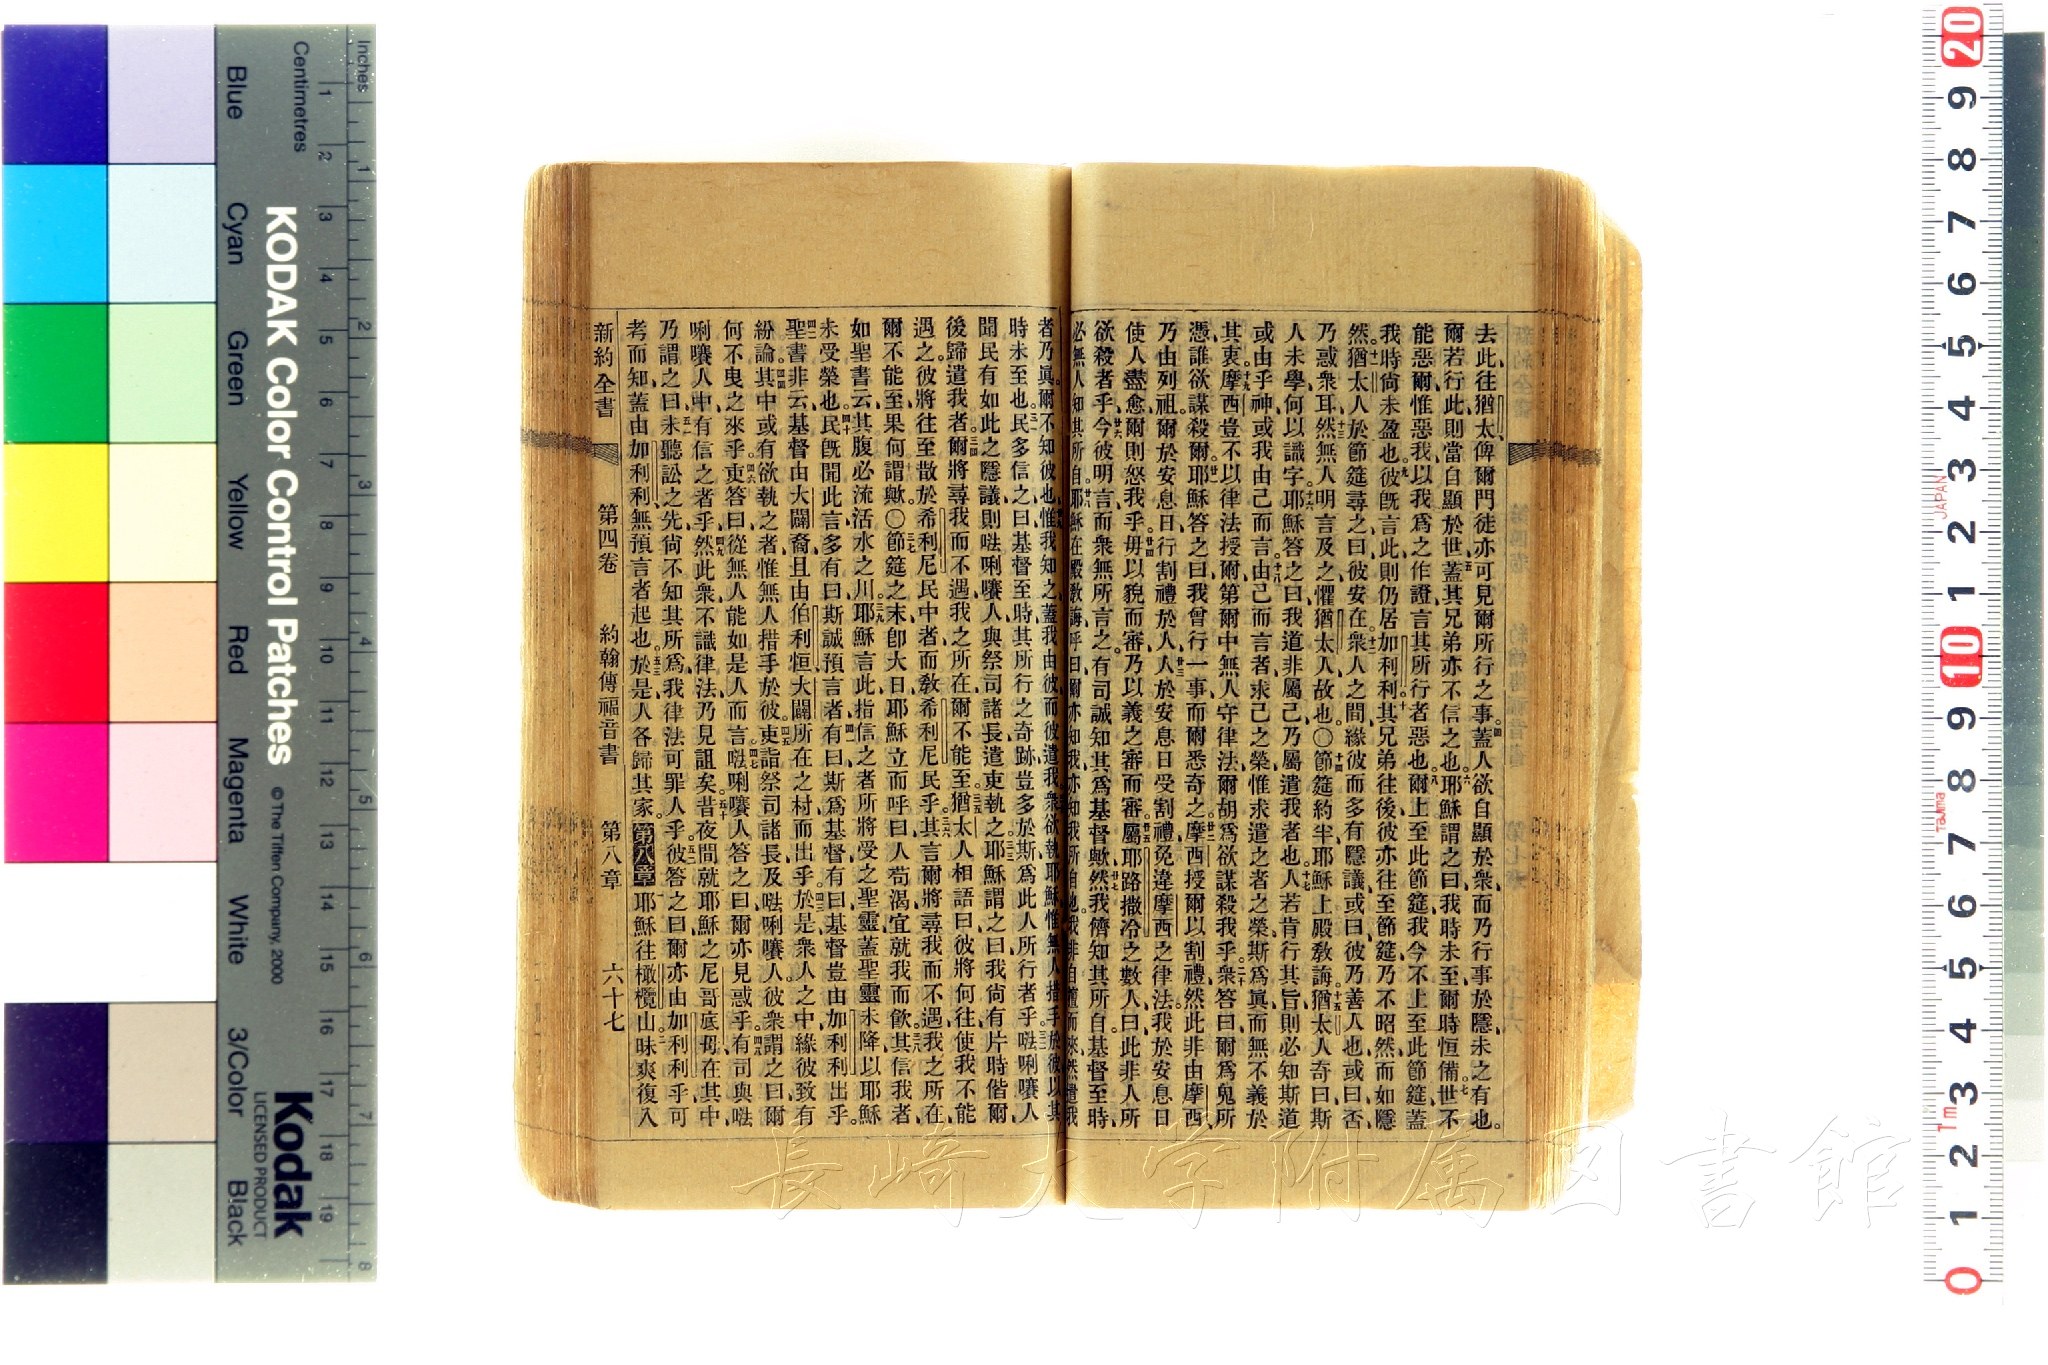 去此往猶太俾爾門徒亦可見爾所行之事蓋人欲自顯於衆而乃行事於隱未之有也
爾若行此則當自顯於世蓋其兄弟亦不信之也耶穌謂之曰我時未至爾時恒備世不
能惡爾惟惡我以我爲之作證言其所行者惡也爾上至此節筵我今不上至此節筵蓋
我時尙未盈也彼旣言此則仍居加利利其兄弟往後彼亦往至節筵乃不昭然而如隱
然猶太人於節筵尋之曰彼安在衆人之間緣彼而多有隱議或曰彼乃善人也或曰否
乃惑衆耳然無人明言及之懼猶太人故也〇節筵約半耶穌上殿敎誨猶太人奇曰斯
人未學何以識字耶穌答之曰我道非屬己乃屬遣我者也人若肯行其旨則必知斯道
或由乎神或我由己而言由己而言者求己之榮惟求遣之者之榮斯爲眞而無不義於
其衷摩西豈不以律法授爾第爾中無人守律法爾胡爲欲謀殺我乎衆答曰爾爲鬼所
憑誰欲謀殺爾耶穌答之曰我曾行一事而爾悉奇之摩西授爾以割禮然此非由摩西
乃由列祖爾於安息日行割禮於人人於安息日受割禮免違摩西之律法我於安息日
使人盡愈爾則怒我乎毋以貌而審乃以義之審而審屬耶路撒冷之數人曰此非人所
欲殺者乎今彼明言而衆無所言之有司誠知其爲基督歟然我儕知其所自基督至時
必無人知其所自耶穌在殿敎誨呼曰爾亦知我亦知我所自也我非自擅而來然遣我
者乃眞爾不知彼也惟我知之蓋我由彼而彼遣我衆欲執耶穌惟無人措手於彼以其
時未至也民多信之曰基督至時其所行之奇跡豈多於斯爲此人所行者乎𠵽唎㘔人
聞民有如此之隱議則𠵽唎㘔人與祭司諸長遣吏執之耶穌謂之曰我尙有片時偕爾
後歸遣我者爾將尋我而不遇我之所在爾不能至猶太人相語曰彼將何往使我不能
遇之彼將往至散於希利尼民中者而敎希利尼民乎其言爾將尋我而不遇我之所在
爾不能至果何謂歟〇節筵之末卽大日耶穌立而呼曰人苟渴宜就我而飮其信我者
如聖書云其腹必流活水之川耶穌言此指信之者所將受之聖靈蓋聖靈未降以耶穌
未受榮也民旣聞此言多有曰斯誠預言者有曰斯爲基督有曰基督豈由加利利出乎
聖書非云基督由大闢裔且由伯利恒大闢所在之村而出乎於是衆人之中緣彼致有
紛論其中或有欲執之者惟無人措手於彼吏詣祭司諸長及𠵽唎㘔人彼衆謂之曰爾
何不曳之來乎吏答曰從無人能如是人而言𠵽唎㘔人答之曰爾亦見惑乎有司與𠵽
唎㘔人中有信之者乎然此衆不識律法乃見詛矣昔夜間就耶穌之尼哥底母在其中
乃謂之曰未聽訟之先尙不知其所爲我律法可罪人乎彼答之曰爾亦由加利利乎可
考而知蓋由加利利無預言者起也於是人各歸其家第八章耶穌往橄欖山昧爽復入
新約全書 第四卷 約翰傳福音書 第八章 六十七
長崎大学附属図書館
KODAK Color Control Patches © The Tiffen Company, 2000
Kodak LICENSED PRODUCT
Inches 1 2 3 4 5 6 7 8
Centimetres 1 2 3 4 5 6 7 8 9 10 11 12 13 14 15 16 17 18 19
Blue Cyan Green Yellow Red Magenta White 3/Color Black
20 9 8 7 6 5 4 3 2 1 10 9 8 7 6 5 4 3 2 1 0
JAPAN Tajima Tm